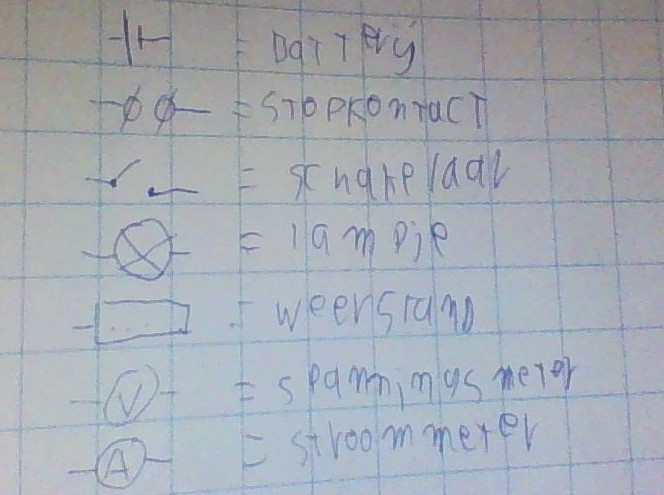 = Battery
= stopkontact
= schakelaar
= lampje
= weerstand
V = spanningsmeter
A = stroommeter